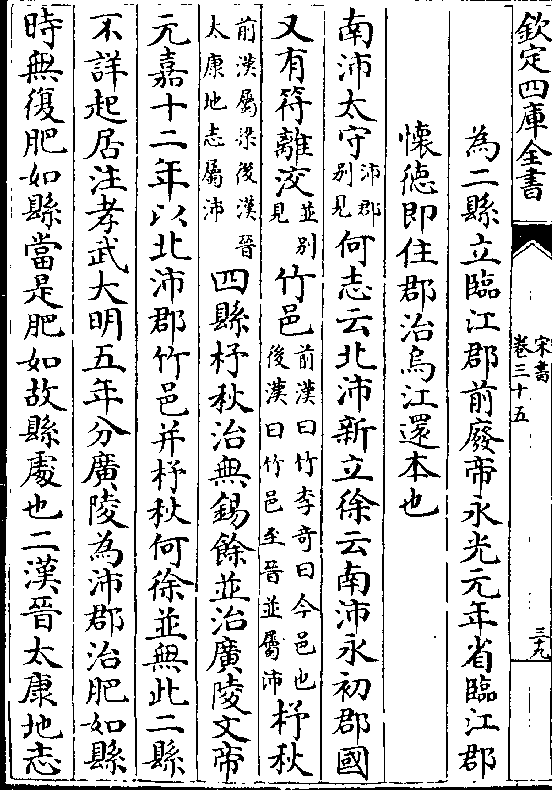 欽定四庫全書
宋書
卷三十五
三九
為二縣立臨江郡前廢帝永光元年省臨江郡
懷徳即住郡治烏江還本也
南沛太守沛郡别見何志云北沛新立徐云南沛永初郡國
又有符離洨並别見竹邑前漢曰竹李奇曰今邑也後漢曰竹邑至晉並屬沛杼秋
前漢屬梁後漢晉太康地志屬沛四縣杼秋治無錫餘並治廣陵文帝
元嘉十二年以北沛郡竹邑并杼秋何徐並無此二縣
不詳起居注孝武大明五年分廣陵為沛郡治肥如縣
時無復肥如縣當是肥如故縣處也二漢晉太康地志